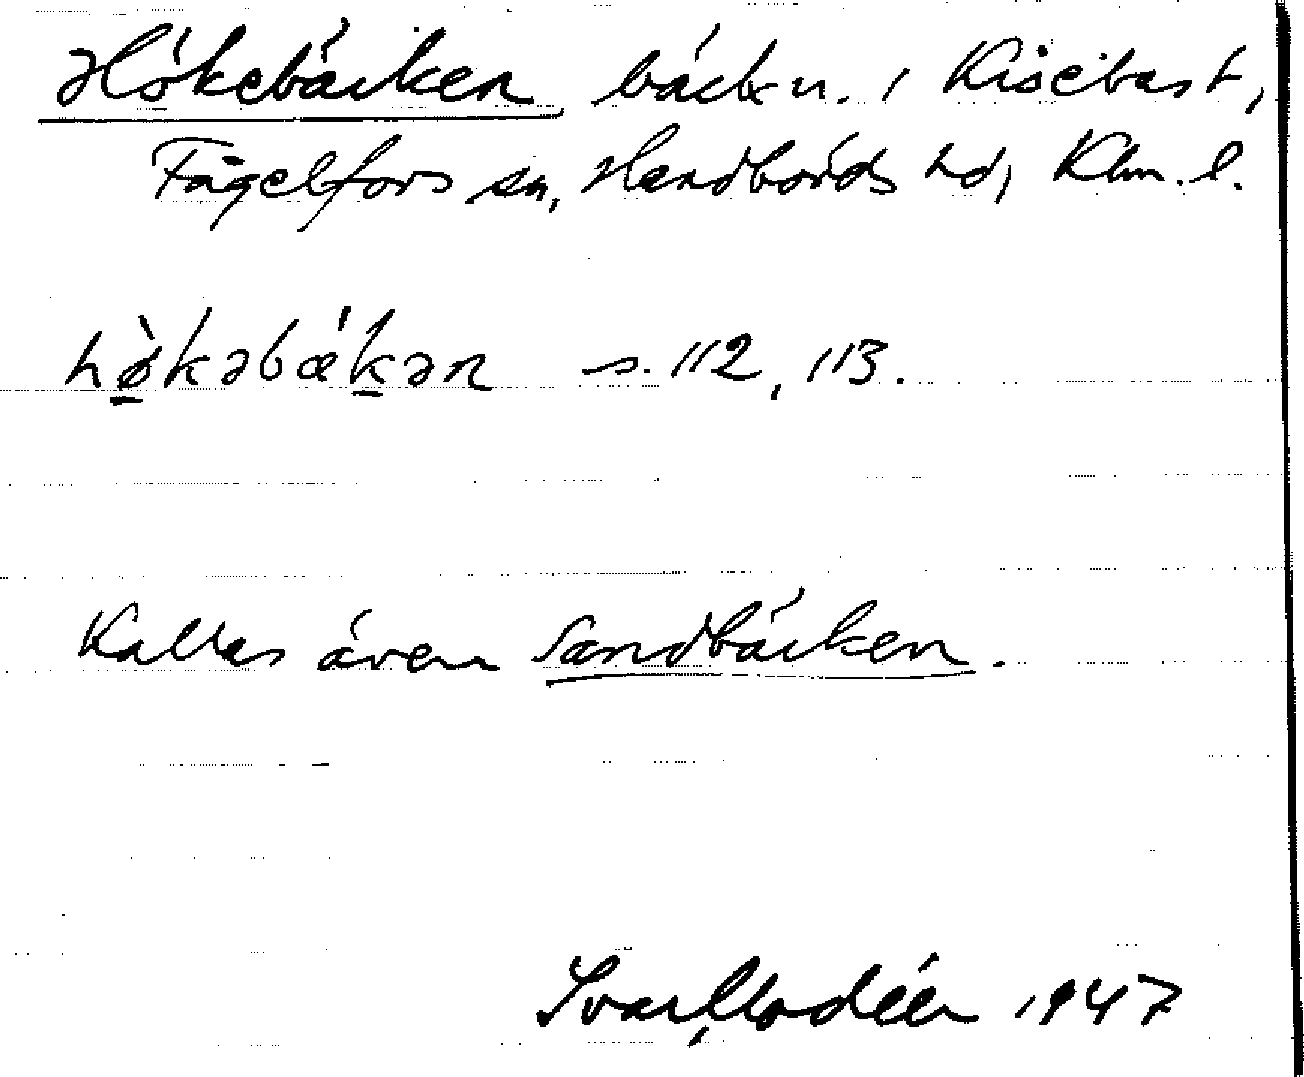 Hökebäcken, bäckn. i Kisebast,
Fågelfors sn, Handbörds hd, Klm. l.
hø̀kəbǽkən s. 112, 113.
Kallas även Sandbäcken.
Ivar Modéer 1947